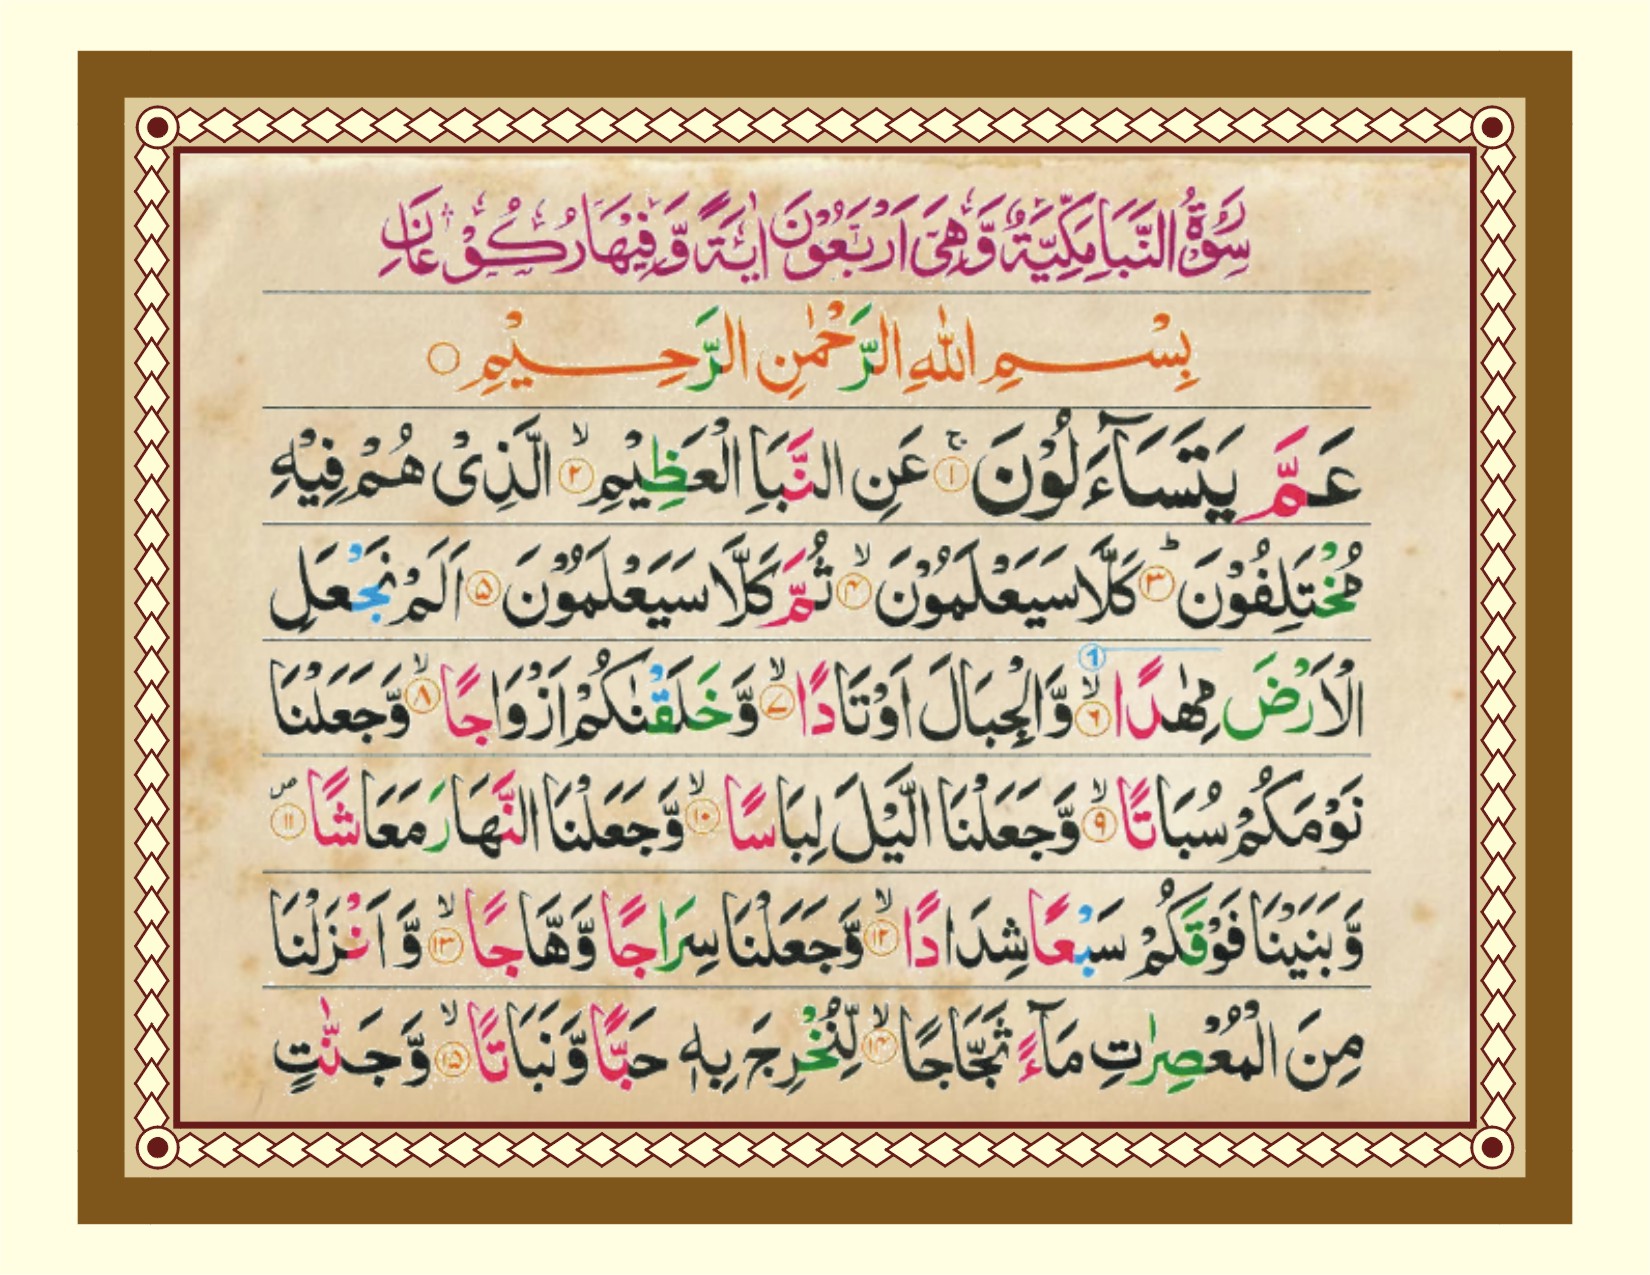 سُوْرَةُ النَّبَاِ مَكِّيَّةٌ وَّهِيَ اَرْبَعُوْنَ اٰيَةً وَّفِيْهَا رُكُوْعَانِ
بِسْمِ اللّٰهِ الرَّحْمٰنِ الرَّحِيْمِ ○
عَمَّ يَتَسَآءَلُوْنَ ۚ‏ ﴿۱﴾ عَنِ النَّبَاِ الْعَظِيْمِ ۙ‏ ﴿۲﴾ الَّذِىْ هُمْ فِيْهِ
مُخْتَلِفُوْنَ ؕ‏ ﴿۳﴾ كَلَّا سَيَعْلَمُوْنَ ۙ‏ ﴿۴﴾ ثُمَّ كَلَّا سَيَعْلَمُوْنَ ﴿۵﴾ اَلَمْ نَجْعَلِ
الْاَرْضَ مِهٰدًا ۙ‏ ﴿۶﴾ وَّالْجِبَالَ اَوْتَادًا ۙ‏ ﴿۷﴾ وَّخَلَقْنٰكُمْ اَزْوَاجًا ۙ‏ ﴿۸﴾ وَّجَعَلْنَا
نَوْمَكُمْ سُبَاتًا ۙ‏ ﴿۹﴾ وَّجَعَلْنَا الَّيْلَ لِبَاسًا ۙ‏ ﴿۱۰﴾ وَّجَعَلْنَا النَّهَارَ مَعَاشًا ۖ‏ ﴿۱۱﴾
وَّبَنَيْنَا فَوْقَكُمْ سَبْعًا شِدَادًا ۙ‏ ﴿۱۲﴾ وَّجَعَلْنَا سِرَاجًا وَّهَّاجًا ۙ‏ ﴿۱۳﴾ وَّ اَنْزَلْنَا
مِنَ الْمُعْصِرٰتِ مَآءً ثَجَّاجًا ۙ‏ ﴿۱۴﴾ لِّنُخْرِجَ بِهٖ حَبًّا وَّنَبَاتًا ۙ‏ ﴿۱۵﴾ وَّجَنّٰتٍ